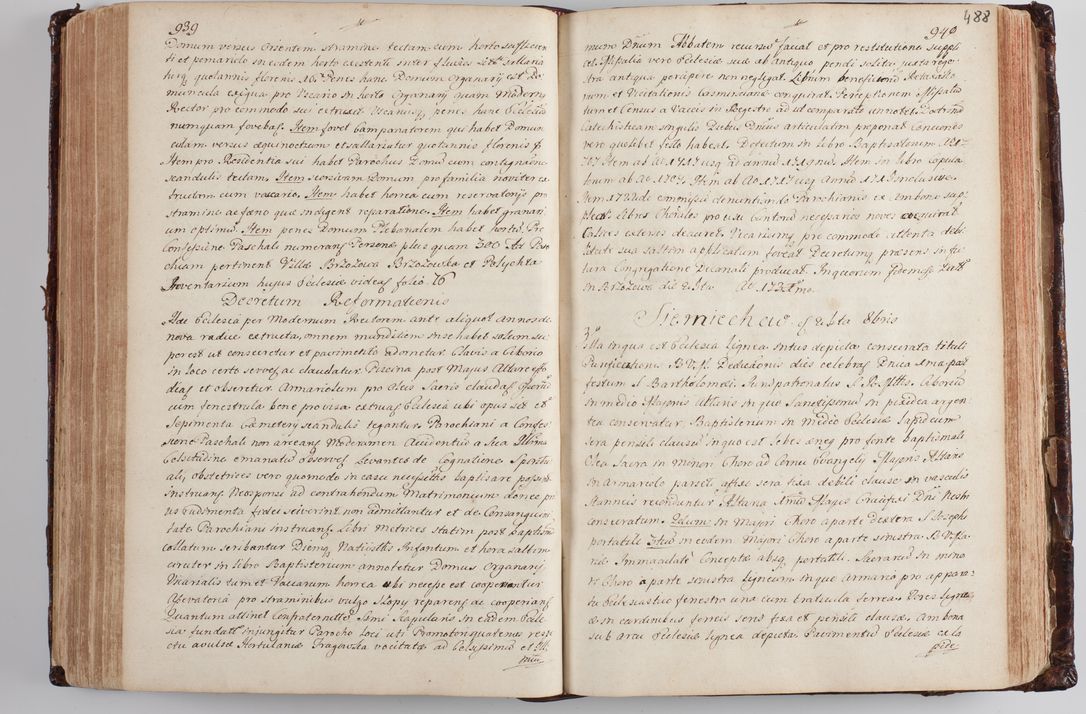 939
Domum versus Orientem stramine tectam cum horto sufficien
ti et pomario in eodem horto existenti
quotannis florenis 10. Penes hanc Domum Organarij est Do
muncula exigua pro Vicario in horto Organarij quam Modernus
Rector pro commodo sui extruxit Vicarius penes hanc Ecclesiam
nunquam fovebat. Item fovet Campanatorem qui habet Domun
culam versus aequinoctium et sallariatur quotannis florenis
Item pro Residentia sui habet Parochus Domum cum contignatione
scandulis tectam. Item seorsivam Domum pro familia noviter ex
tructam cum vaccario. Item habet horrea cum reservatorijs pro
stramine ac faeno quae indigent reparatione. Item habet granari
um optimum. Item penes Domum Plebanalem habet hortum. Pro
Confessione Paschali numerant Personae plus quam 300 Ad Paro
chiam pertinent Villae Brzozowa Brzozowka et Polychta
Inventarium hujus Ecclesiae videas folio 76
Decretum Reformationis
Haec Ecclesia per Modernum Rectorem ante aliquot Annos de
nova radice extructa, omnem munditiem in se habet solum su
perest ut consecretur et pavimento adornetur. Clavis a Ciborio
in loco certo servetur ac claudatur. Piscina post Majus Altare effo
diatur et obseretur. Armariolum pro Oleis Sacris claudatur
cum fenestrula bene provisa extruatur Ecclesia ubi opus sit et
Sepimenta Caemeterij scandulis tegantur. Parochiani a Confes
sione Paschali non arceantur Moderamen Accidentium a Sua Illma
Celsitudine emanatum observet Levantes de Cognatione Spiritu
ali, obstetrices vero quomodo in casu necessitatis baptisare possint
instruantur Neosponsi ad contrahendum Matrimonium donec pri
us rudimenta fidei sciverint non admittantur et de Consanguini
tate Parochiani instruantur. Libri Metrices statim post baptismum
collatum scribantur Diemque Nativitatis Infantum et hora saltem
circiter in Libro Baptisatorum annotetur Domus Organarij
Vicarialis tum et Vaccarum horrea ubi necesse est cooperiantur
Conservatoria pro straminibus vulgo Szopy reparentur ac cooperiantur
Quantum attinet Confraternitatem Sacri Scapularis in eadem Eccle
sia fundatam injungitur Parocho Loci uti Promotori quatenus resp
ectu avulsae Hortulaniae Fragowska vocitatae ad Celsissimum et Illu

940
488
Dnum Abbatem recursum faciat et pro restitutione supplicet
Missalia vero Ecclesiae suae ab antiquo pendi solita juxta regi
stra antiqua percipere non negligat. Librum beneficiorum Retaxatio
num et Natalienis Cosmiciana conquirat. Perceptionem Missalio
rum et Census a Vaccis in Regestro ad id comparato annotet. Doctrinam
Catechisticam singulis Diebus Dnicis articulatim proponat Conciones
vero quolibet festo habeat. Defectum in Libro Baptisatorum
707 Item ab Ao 1717 usque ad annum 1719num. Item in libro copula
torum ab Ao 1707. Item ab Ao 1717 usque Annum 1718 inclusive.
Item 1722 de commissa denuntiando Parochianis ex Ambona sup
pleat. Libros Chorales pro usu Cantus necessarios novos conquirat
Castros exteros decoret. Vicarium pro commodo attenta debi
litate sua saltem ad libitum foveat Decretumque praesens in fu
tura Congregatione Decanali producat. In quorum fidem
in Brzozowa die 2 8bris Ao 1731mo.
Siemiechow
3tia in qua est Ecclesia Lignea intus depicta consecrata tituli
Purificationis B.V.M. Dedicationis dies celebratur Dnica 1ma post
festum S. Bartholomaei. Jurispatronatus S. R. Mttis. Ciborium
in medio Majoris Altaris in quo Sanctissimum in pixidea argen
tea conservatur. Baptisterium in medio Ecclesiae lapideum
sera pensili clausum in quo est lebes aeneus pro fonte baptismali
Olea Sacra in minori Choro ad Cornu Evangelij Majoris Altaris
in Armariolo parieti affixo sera fixa debili clauso in vasculis
stanneis reconduntur Altaria 1mum Majus Crucifixi Dni Nostri
consecratum. 2dum: in Majori Choro a parte dextera S. Josephi
portatile 3tium in eodem Majori Choro a parte sinistra
Immaculatae Conceptae absque portatili. Sacrarium in mino
ri Choro a parte sinistra ligneum in quo Armaria pro appara
tu Ecclesiastico fenestra una cum craticula ferrea. Fores ligneae
in cardinibus ferreis sera fixa et pensili clausae. Ambona
sub arcu Ecclesiae lignea depicta Pavimentum Ecclesiae ex la
pide